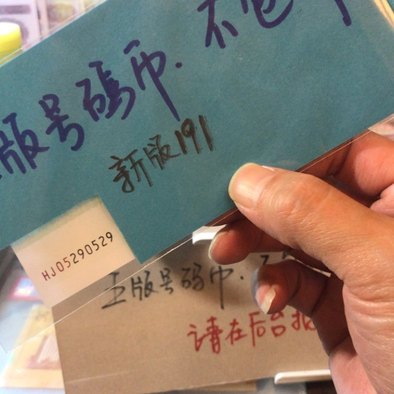 版号碼币.不包
新版191
HJ05290529
版号碼币.不
请在后台